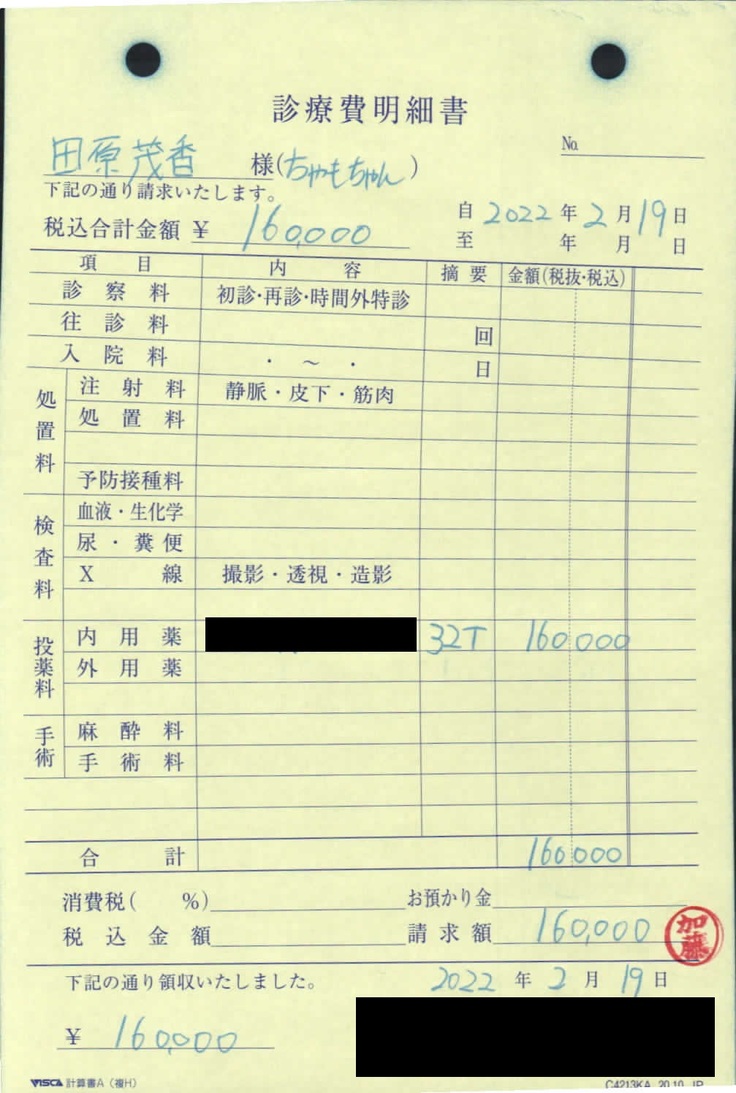 診療費明細書
No.
田原茂香 様(ちゃもちゃん)
下記の通り請求いたします。
自 2022 年 2 月 19 日
税込合計金額 ¥ 160,000
至 年 月 日
項 目 内 容 摘 要 金額(税抜・税込)
診 察 料 初診・再診・時間外特診
往 診 料 回
入 院 料 ・ ～ ・ 日
処置料
注 射 料 静脈・皮下・筋肉
処 置 料
予防接種料
検査料
血液・生化学
尿・糞便
X 線 撮影・透視・造影
投薬料
内 用 薬 32T 160000
外 用 薬
手術
麻 酔 料
手 術 料
合 計 160000
消費税( %) お預かり金
税 込 金 額 請 求 額 160,000
加藤
下記の通り領収いたしました。 2022 年 2 月 19 日
¥ 160,000
VISCA 計算書A（複H） C4213KA 20.10